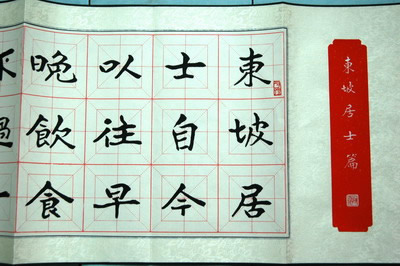 東坡居士篇
東坡居
士自今
以往早
晚飲食